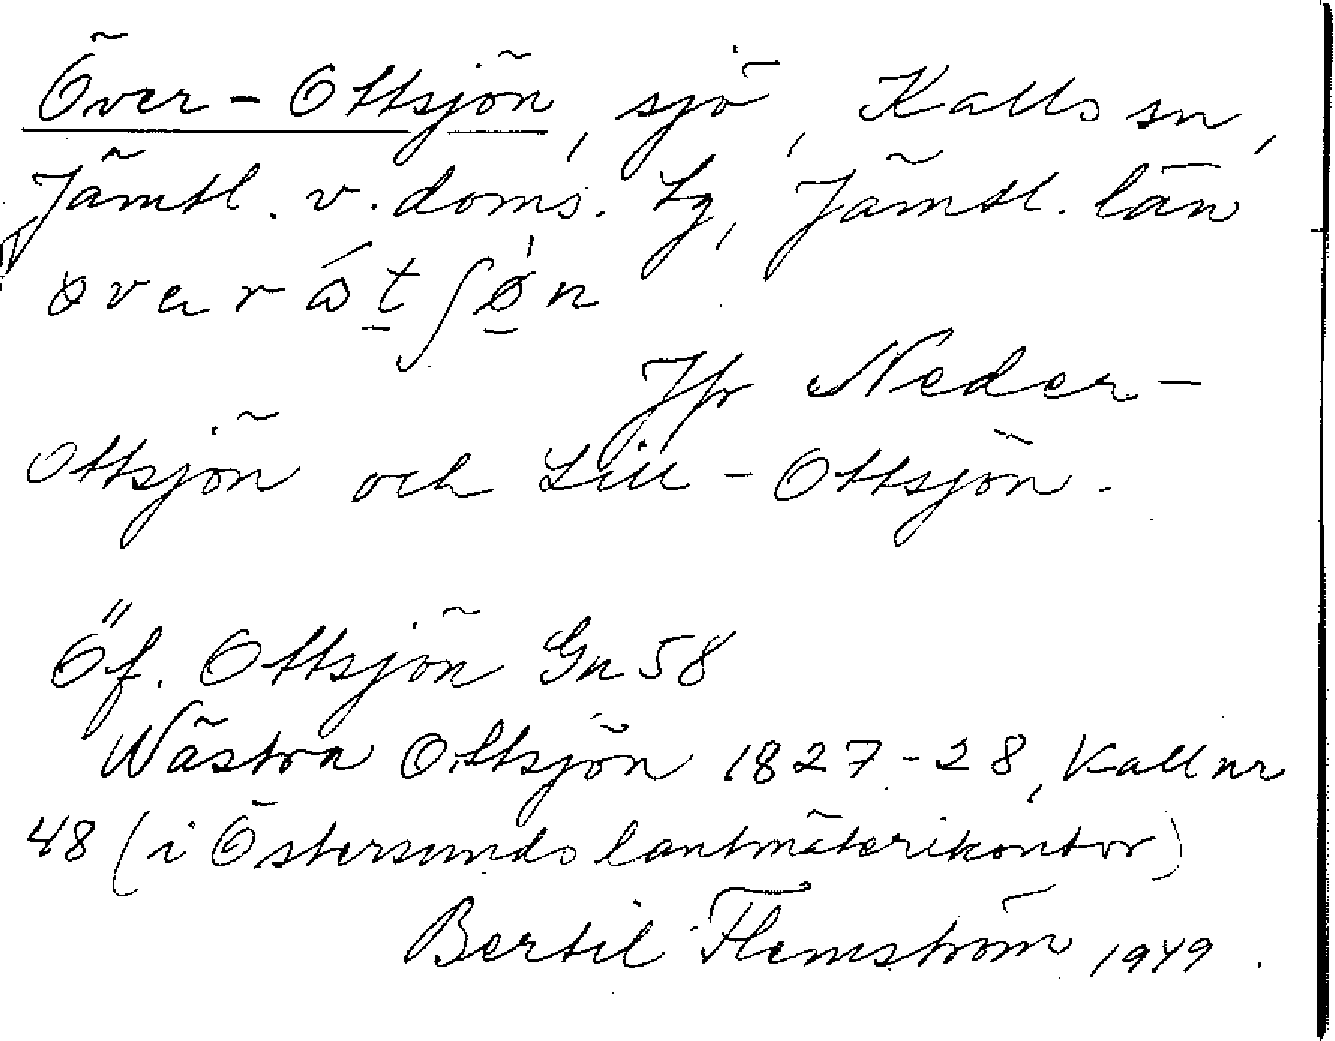 Över-Ottsjön, sjö, Kalls sn,
Jämtl. v. doms. tg, Jämtl. län
Jfr Neder-
Ottsjön och Lill-Ottsjön.
Öf. Ottsjön Gn 58
Wästra Ottsjön 1827-28, Kall nr
48 (i Östersunds lantmäterikontor)
Bertil Flemström 1949.